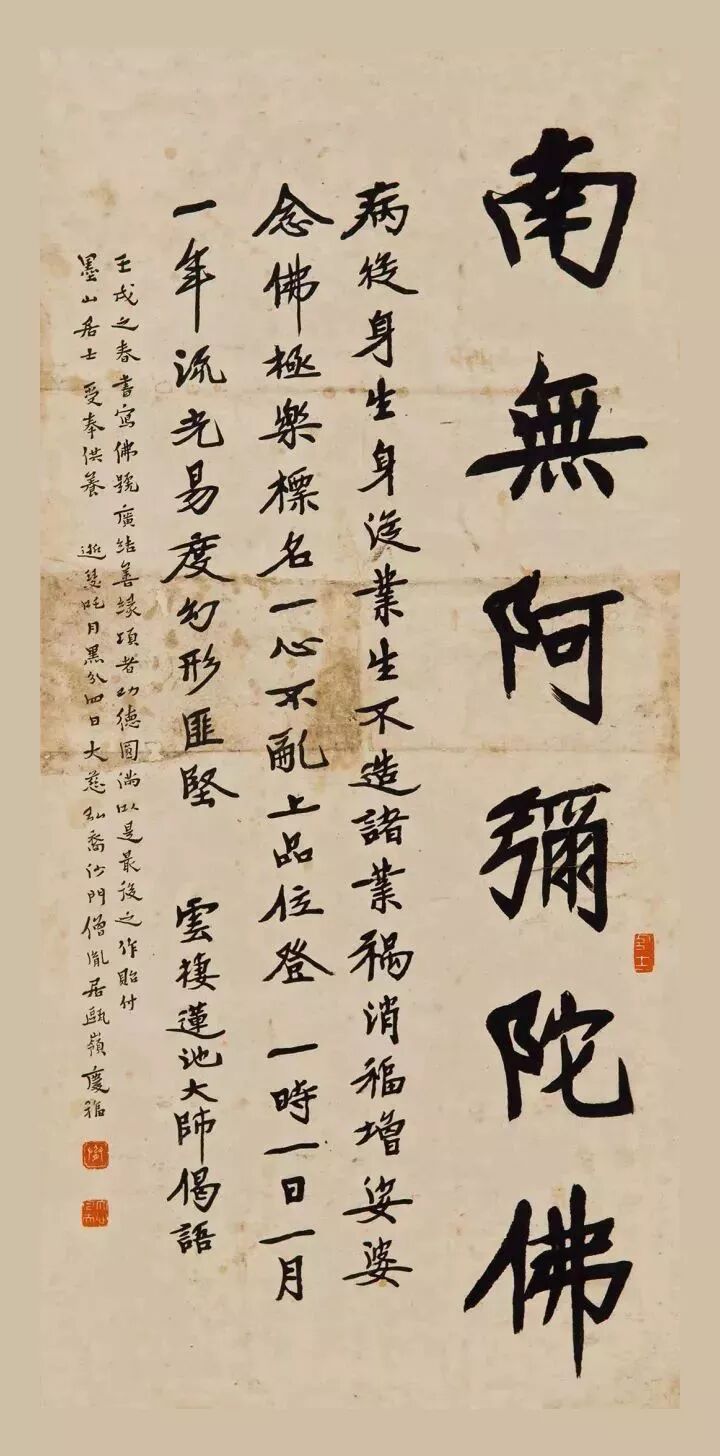 南無阿彌陀佛
病從身生身從業生不造諸業禍消福增娑婆
念佛極樂標名一心不亂上品位登 一時一日一月
一年流光易度幻形匪堅 雲棲蓮池大師偈語
壬戌之春書寫佛號廣結善緣項者功德圓滿以是最後之作貽付
墨山居士受奉供養 逝瑟吒月黑分四日大慈弘裔沙門僧胤居甌嶺慶福